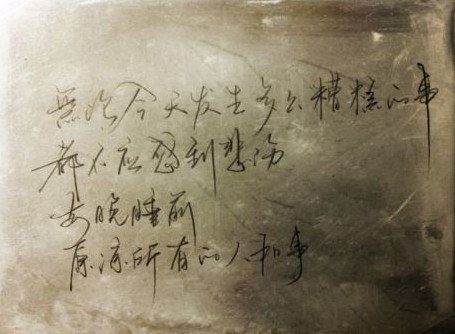 無论今天发生多么糟糕的事
都不应感到悲伤
每晚睡前
原谅所有的人和事